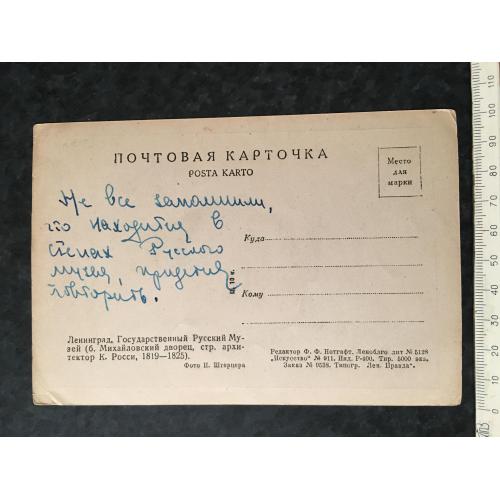 ПОЧТОВАЯ КАРТОЧКА
POSTA KARTO
Место
для
марки
Не все запомнили,
что находится в
стенах Русского
музея, придется
повторить.
Куда
Кому
Ц. 10 к.
Ленинград, Государственный Русский Му-
зей (б. Михайловский дворец, стр. архи-
тектор К. Росси, 1819—1825).
Фото П. Штерцера
Редактор Ф. Ф. Нотгафт. Леноблго лит № 5128
"Искусство" № 911, Инд. Р-400. Тир. 5000 экз.
Заказ № 9538. Типогр. "Лен. Правда".
110
100
90
80
70
60
50
40
30
20
10